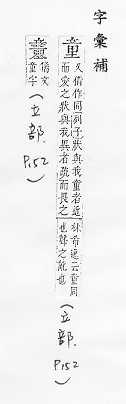 字彙補
童
又借作同列子狀與我童者近
而愛之狀與我異者疏而畏之
林希逸云童同
也聲之訛也
(立部. P152)
文
童字
(立部. P.152)